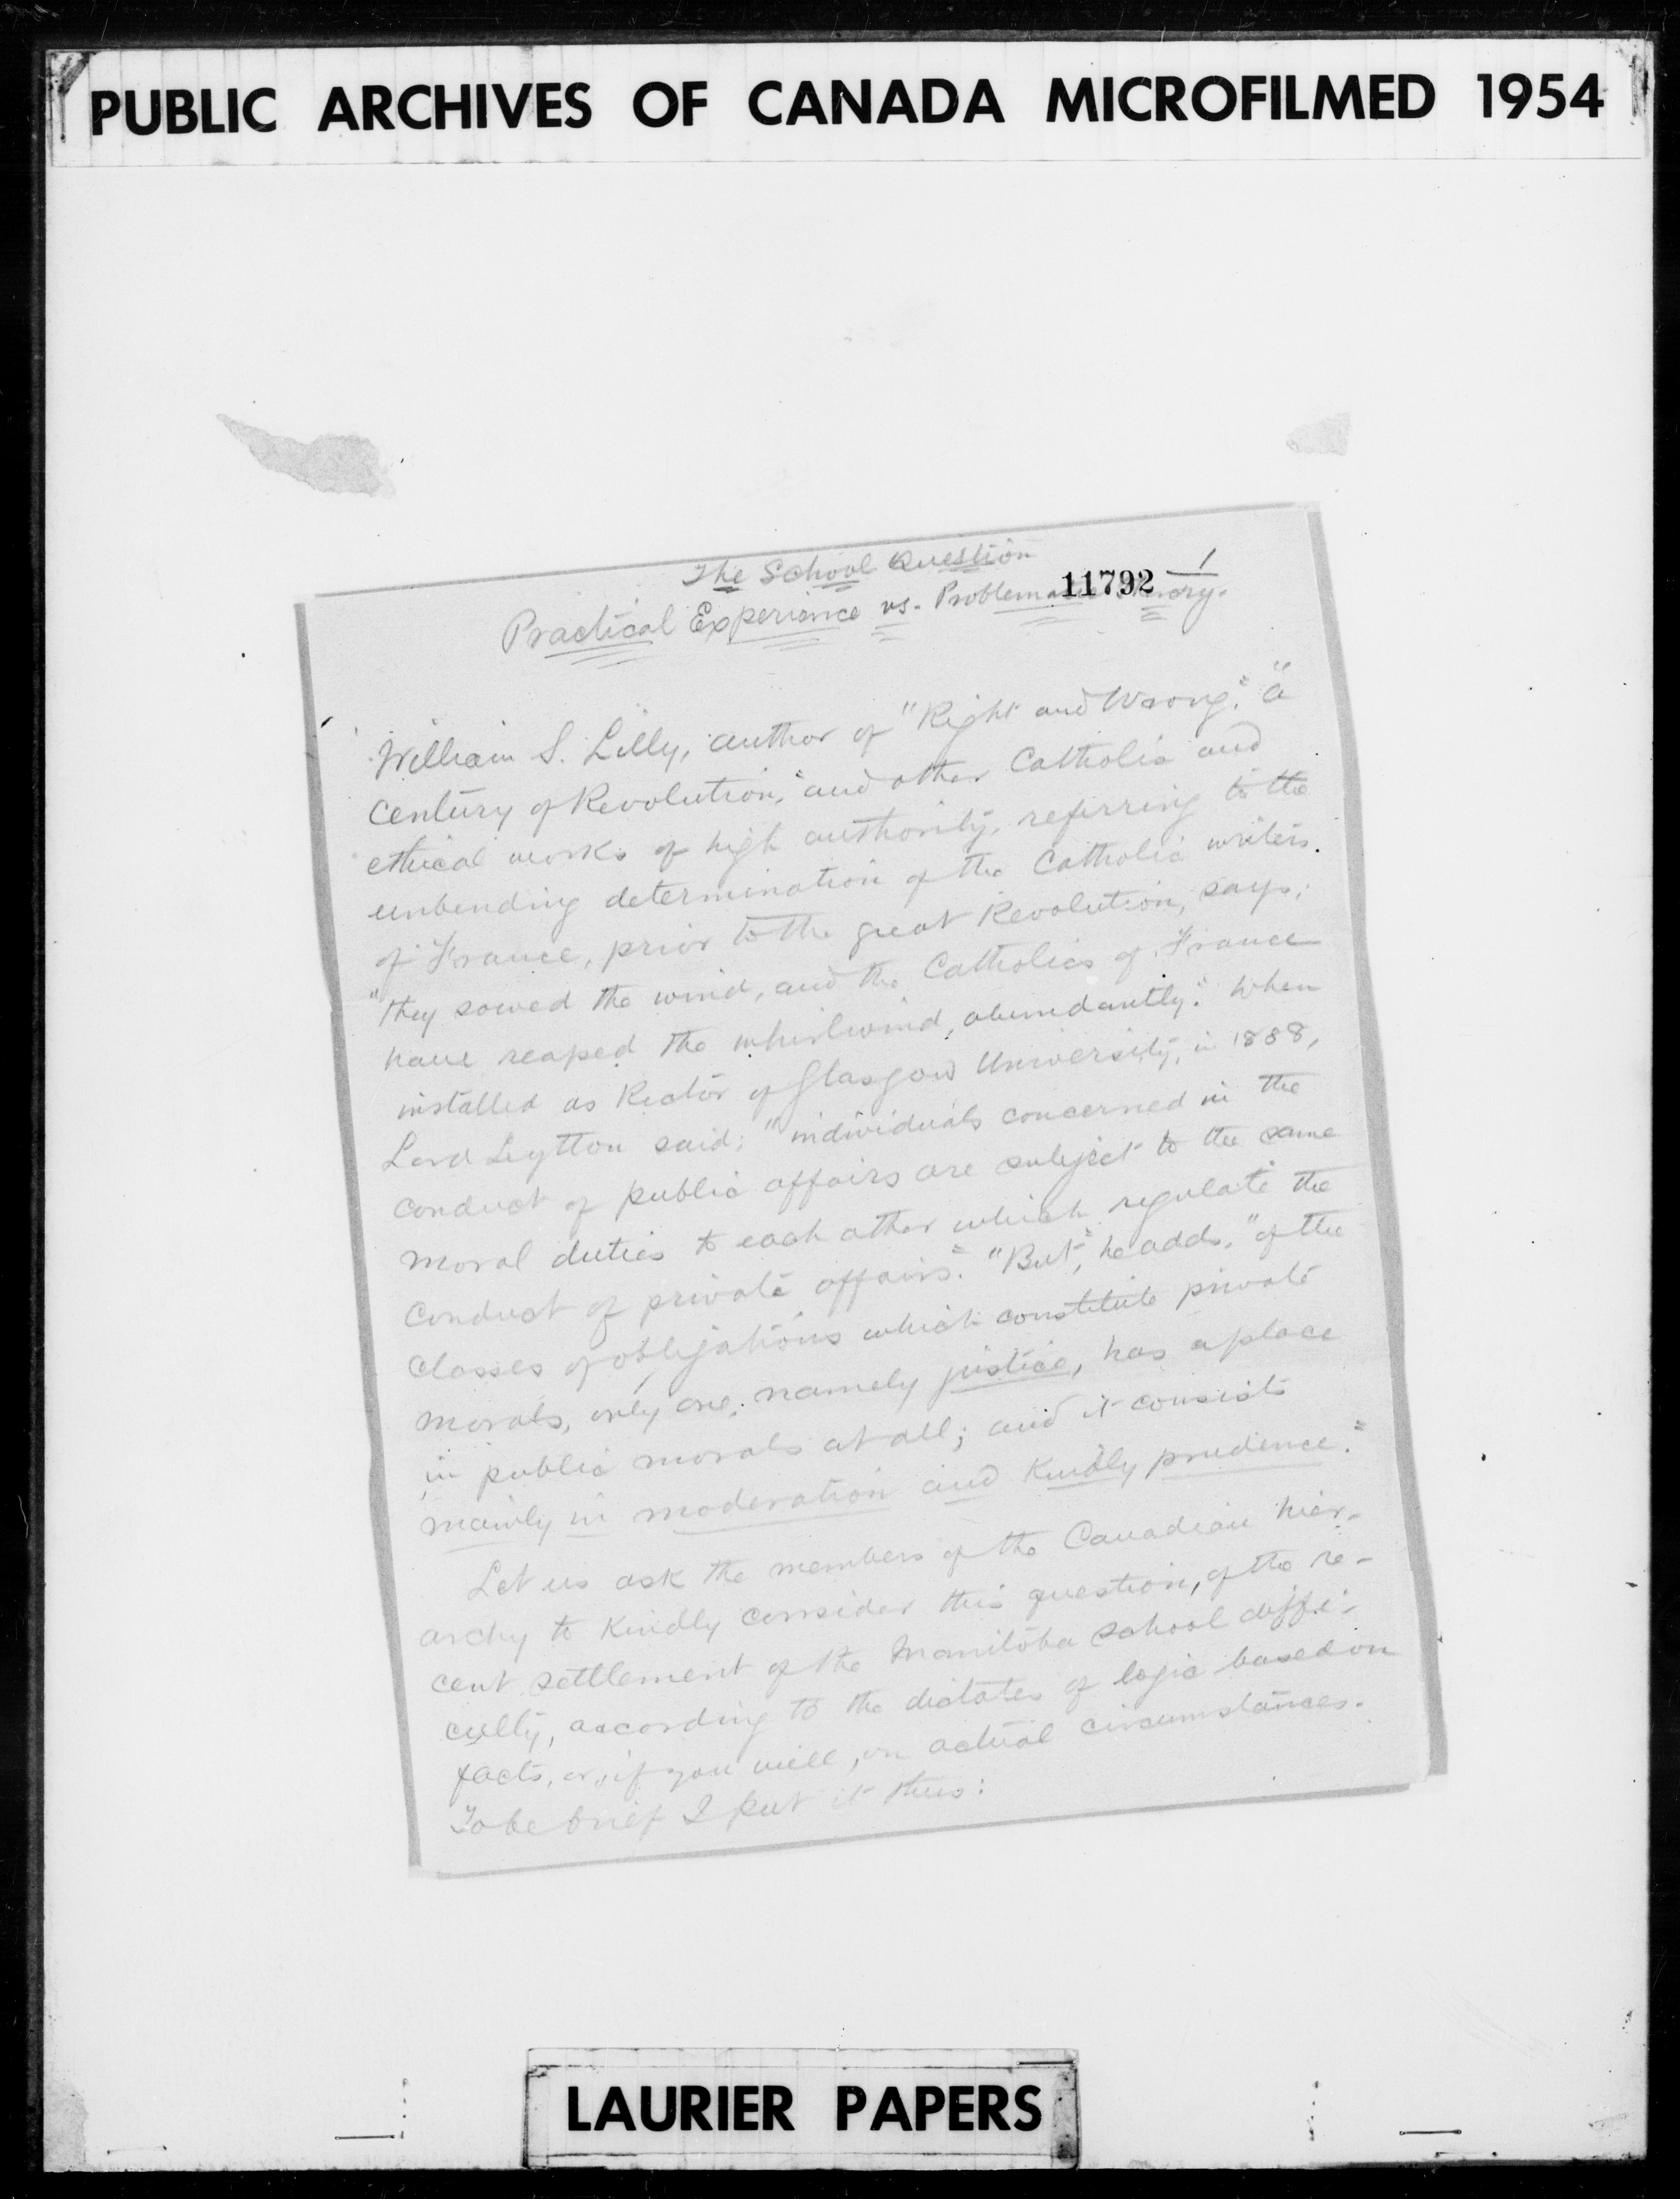 PUBLIC ARCHIVES OF CANADA MICROFILMED 1954
The School Question
11792 1
Practical Experience vs.
William S. Lilly, author of "Right and Wrong," "a
Century of Revolution," and other Catholic and
ethical works of high authority, referring to the
unbending determination of the Catholic writers
of France, prior to the great Revolution, says:
"they sowed the wind, and the Catholics of France
have reaped the whirlwind, abundantly." When
installed as Rector of Glasgow University, in 1888,
Lord Lytton said: "individuals concerned in the
conduct of public affairs are subject to the same
moral duties to each other which regulate the
conduct of private affairs." "But", he adds, "of the
classes of obligations which constitute private
morals, only one, namely justice, has a place
in public morals at all; and it consists
mainly in moderation and kindly prudence."
Let us ask the members of the Canadian hier-
archy to kindly consider this question, of the re-
cent settlement of the Manitoba school diffi-
culty, according to the dictates of logic based on
facts, or, if you will, on actual circumstances.
To be brief I put it thus:
LAURIER PAPERS